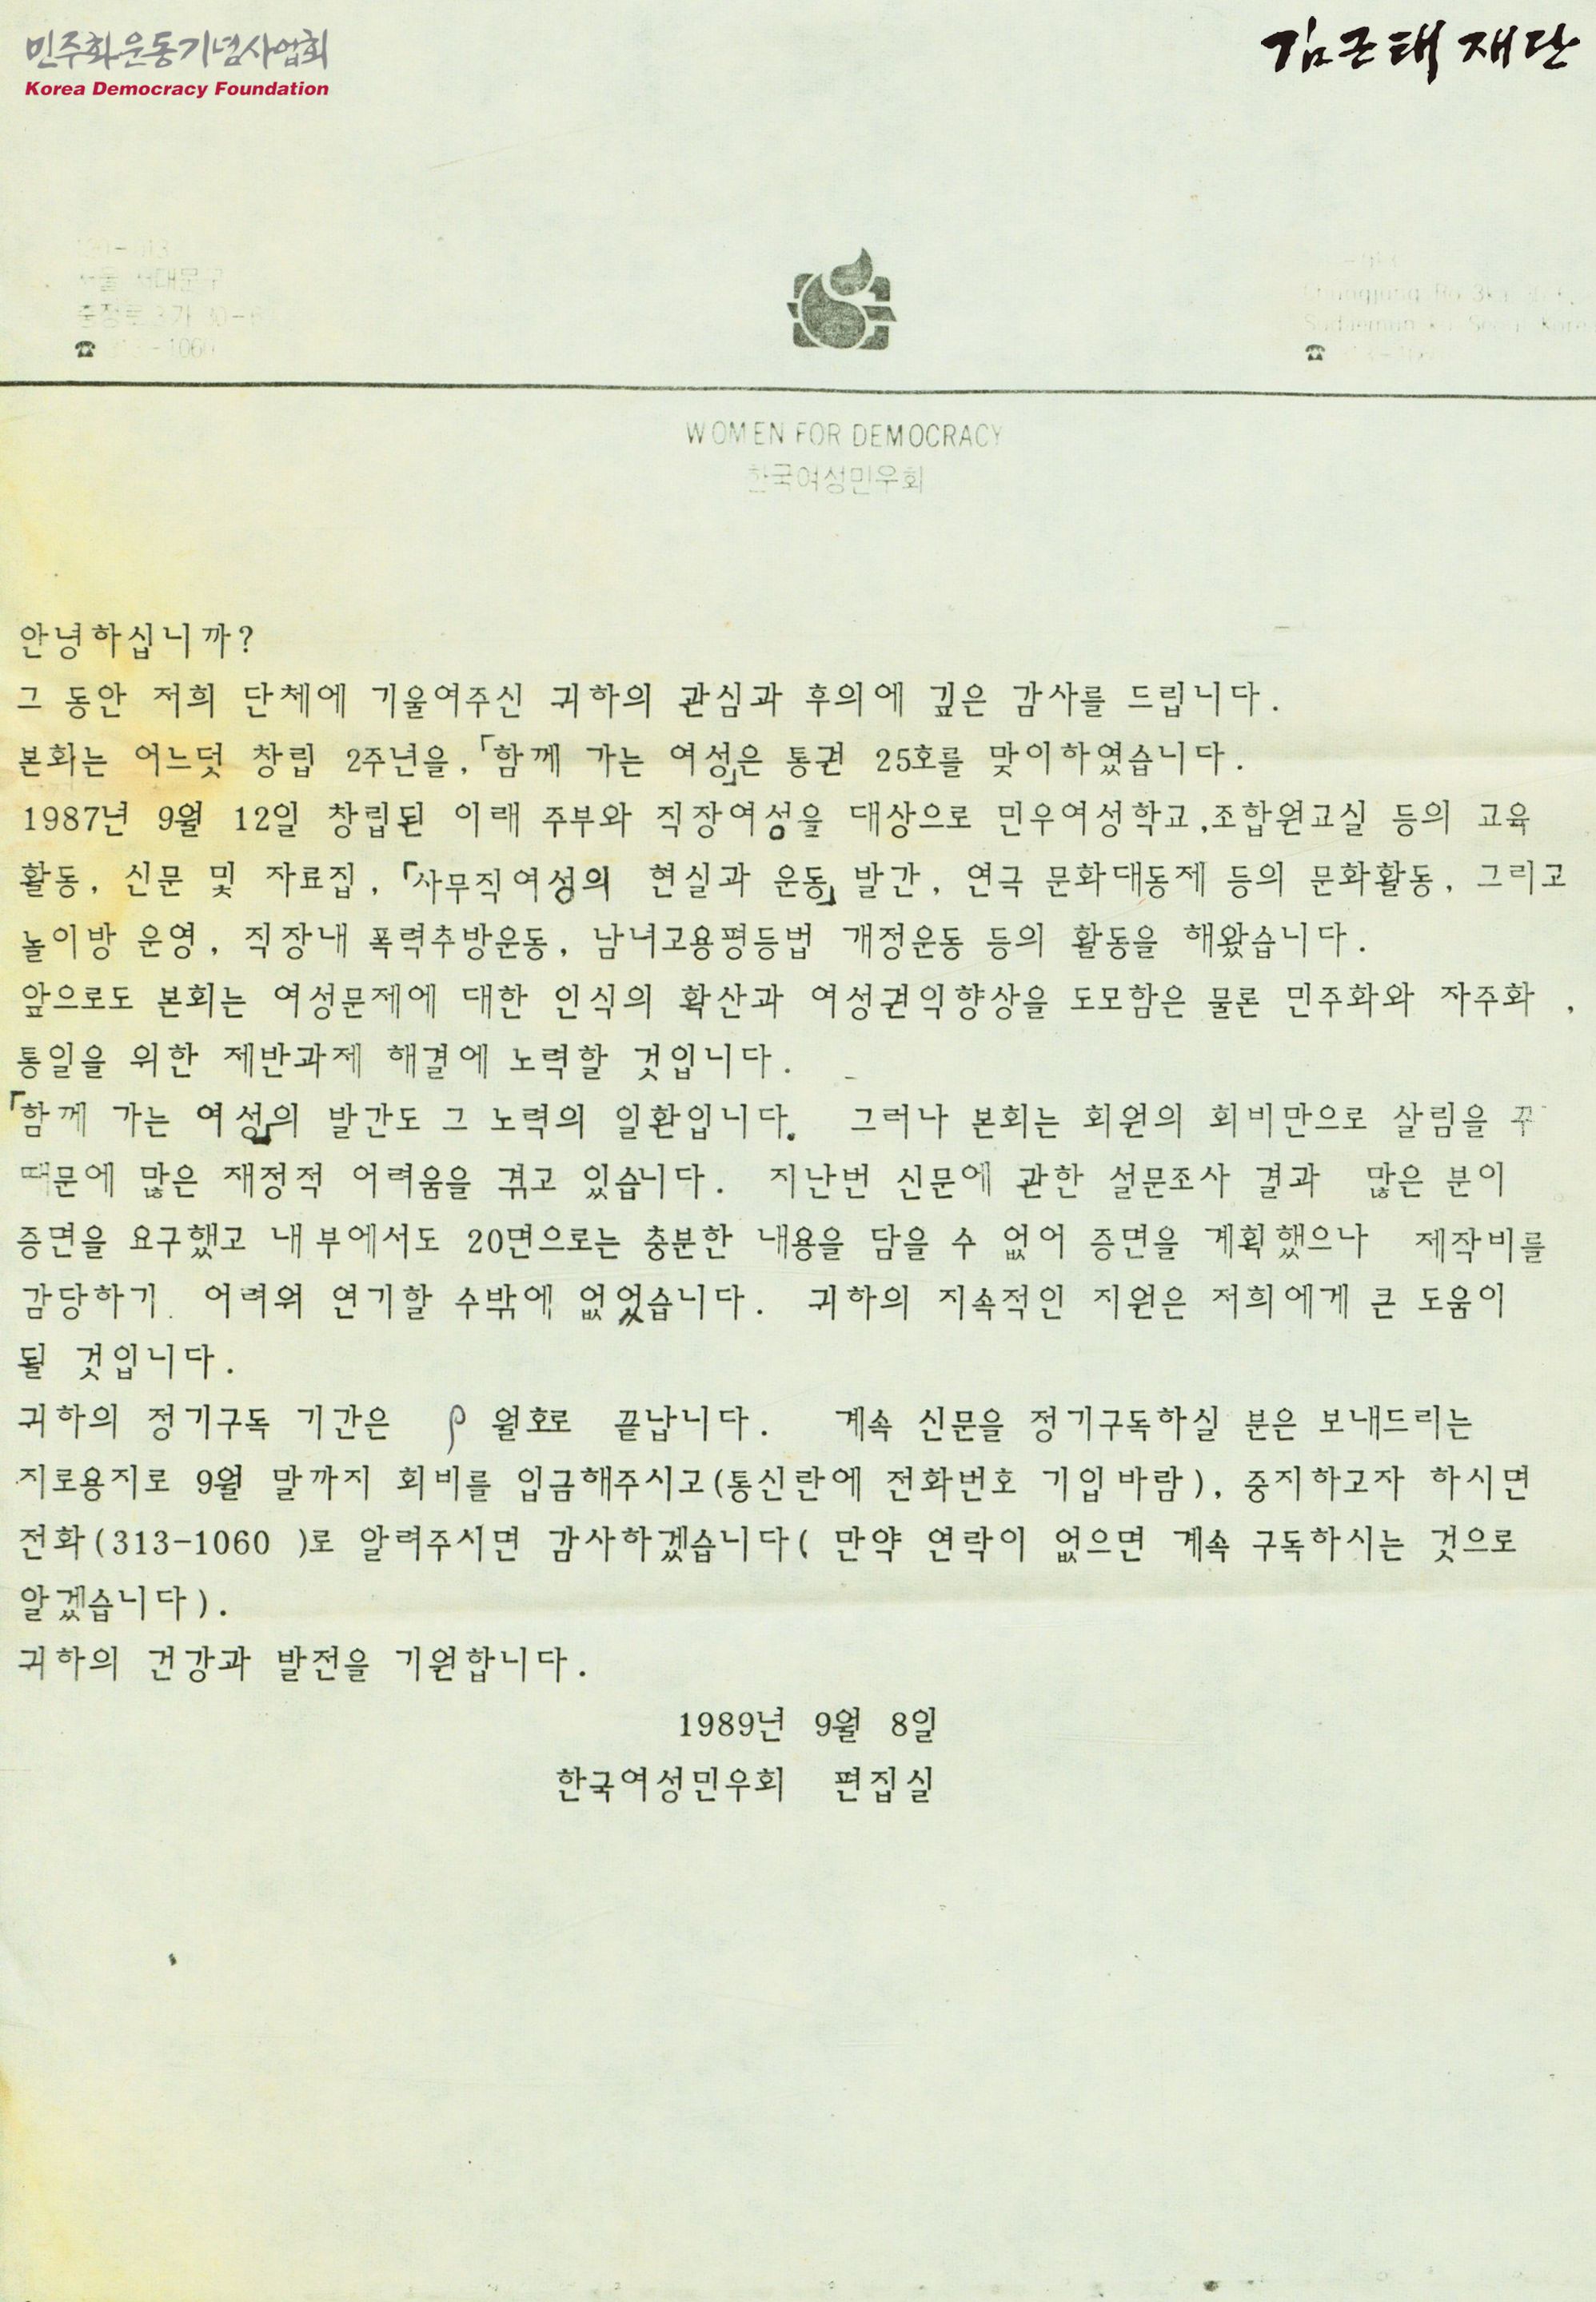 민주화운동기념사업회
Korea Democracy Foundation
김근태 재단
WOMEN FOR DEMOCRACY
한국여성민우회
안녕하십니까?
그 동안 저희 단체에 기울여주신 귀하의 관심과 후의에 깊은 감사를 드립니다.
본회는 어느덧 창립 2주년을,「함께 가는 여성」은 통권 25호를 맞이하였습니다.
1987년 9월 12일 창립된 이래 주부와 직장여성을 대상으로 민우여성학교,조합원교실 등의 교육
활동, 신문 및 자료집,「사무직여성의 현실과 운동」발간, 연극 문화대동제 등의 문화활동, 그리고
놀이방 운영, 직장내 폭력추방운동, 남녀고용평등법 개정운동 등의 활동을 해왔습니다.
앞으로도 본회는 여성문제에 대한 인식의 확산과 여성권익향상을 도모함은 물론 민주화와 자주화 ,
통일을 위한 제반과제 해결에 노력할 것입니다.
「함께 가는 여성」의 발간도 그 노력의 일환입니다. 그러나 본회는 회원의 회비만으로 살림을
때문에 많은 재정적 어려움을 겪고 있습니다. 지난번 신문에 관한 설문조사 결과 많은 분이
증면을 요구했고 내부에서도 20면으로는 충분한 내용을 담을 수 없어 증면을 계획했으나 제작비를
감당하기 어려워 연기할 수밖에 없었습니다. 귀하의 지속적인 지원은 저희에게 큰 도움이
될 것입니다.
귀하의 정기구독 기간은 월호로 끝납니다. 계속 신문을 정기구독하실 분은 보내드리는
지로용지로 9월 말까지 회비를 입금해주시고(통신란에 전화번호 기입바람), 중지하고자 하시면
전화(313-1060 )로 알려주시면 감사하겠습니다( 만약 연락이 없으면 계속 구독하시는 것으로
알겠습니다).
귀하의 건강과 발전을 기원합니다.
1989년 9월 8일
한국여성민우회 편집실